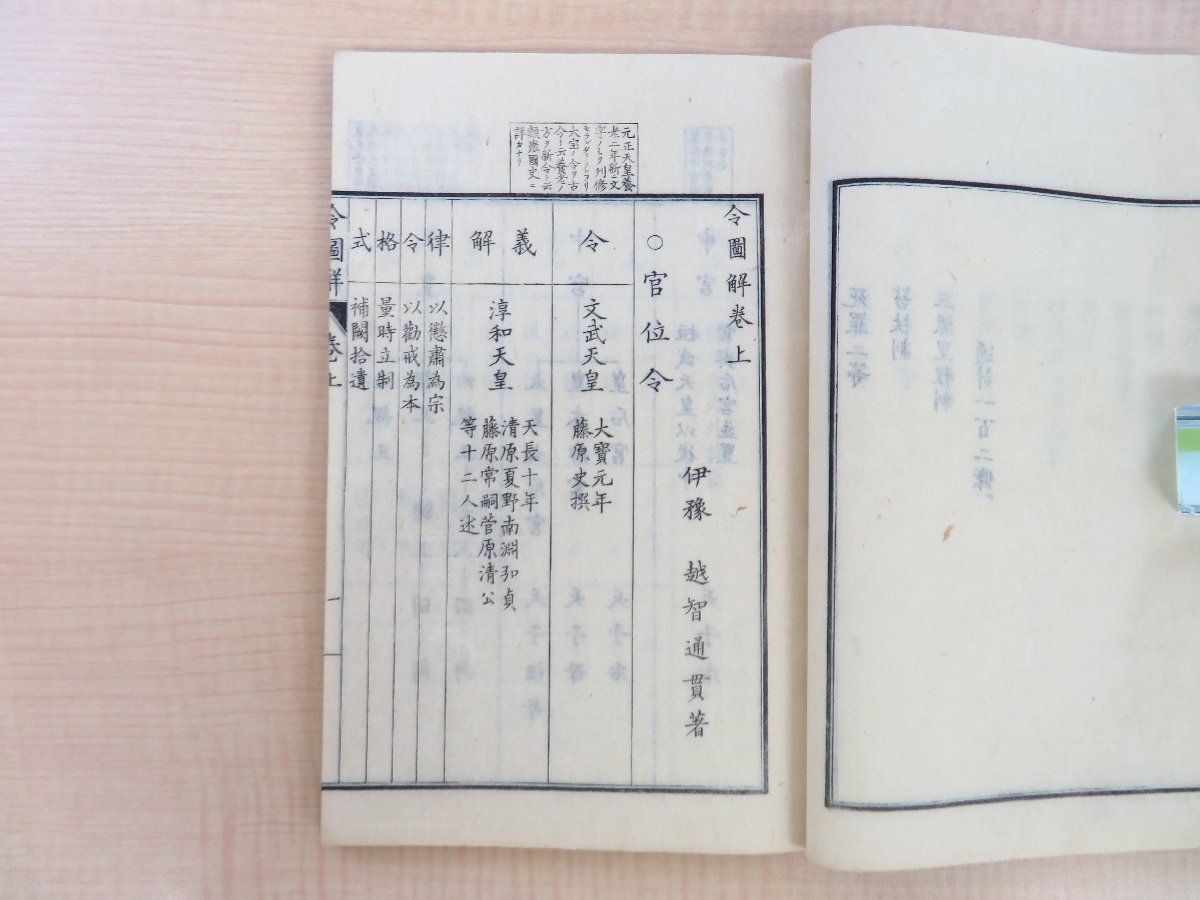 元正天皇養
老二年新ニ文
字ノミヲ刋修
大宝ノ令ヲ古
令ト云養老ノ
方ヲ新令ト云
類聚國史ニ
詳カナリ
令圖解卷上
伊豫 越智通貫著
○官位令
令 文武天皇 大寶元年
藤原史撰
義解 淳和天皇 天長十年
清原夏野南淵弘貞
藤原常嗣菅原清公
等十二人述
律 以懲肅為宗
令 以勸戒為本
格 量時立制
式 補闕拾遺
令圖解 卷上 一